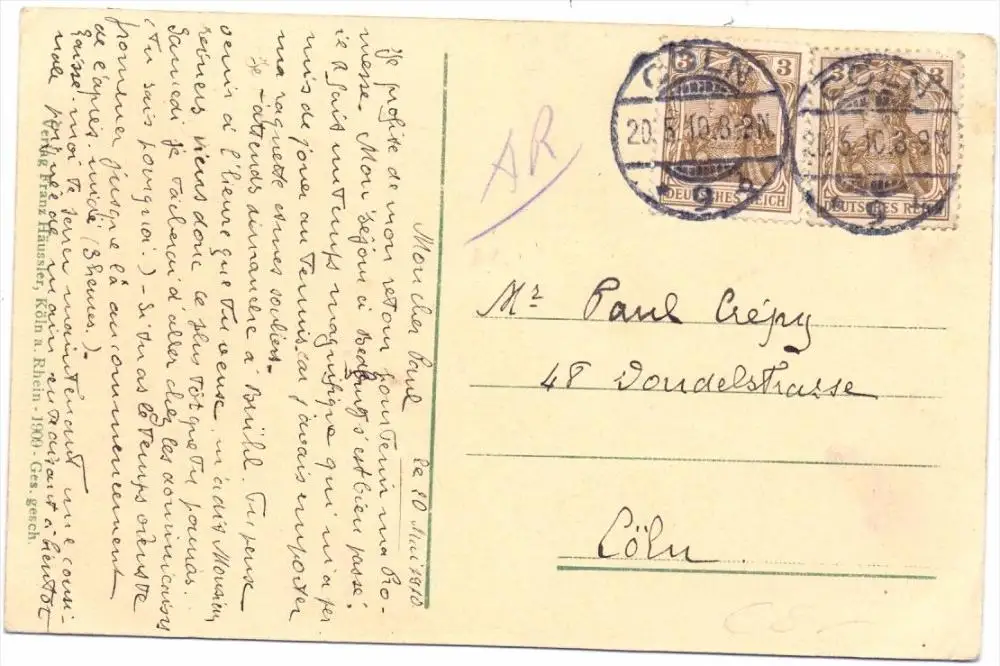 Mon cher Paul le 20 Mai 1910
Je profite de mon retour pour tenir ma Pro-
messe. Mon séjour à Bedburg s'est bien passé.
il a fait un temps magnifique qui m'a per
mis de jouer au tennis car j'avais emporter
ma raquette et mes souliers.
Je t'attends dimanche à Brühl. Tu peux
venir à l'heure que tu veux m'a dit Monsieur
viens donc le plus tôt que tu pourras.
Samedi je tâcherai d'aller chez les dominicains
(tu sais pourquoi.) - Si tu as le temps viens te
promener jusque là au commencement
de l'après-midi (3 heures). -
Laisse-moi te serrer maintenant une cousi-
nale poignée de main en disant à bientôt
Verlag Franz Häussler, Köln a. Rhein - 1909 - Ges. gesch.
AR
3 3
DEUTSCHES REICH
CÖLN
20.5.10.8-9N.
9
3 3
DEUTSCHES REICH
CÖLN
20.5.10.8-9N.
9
Mr Paul Crépy
48 Vondelstrasse
Cöln